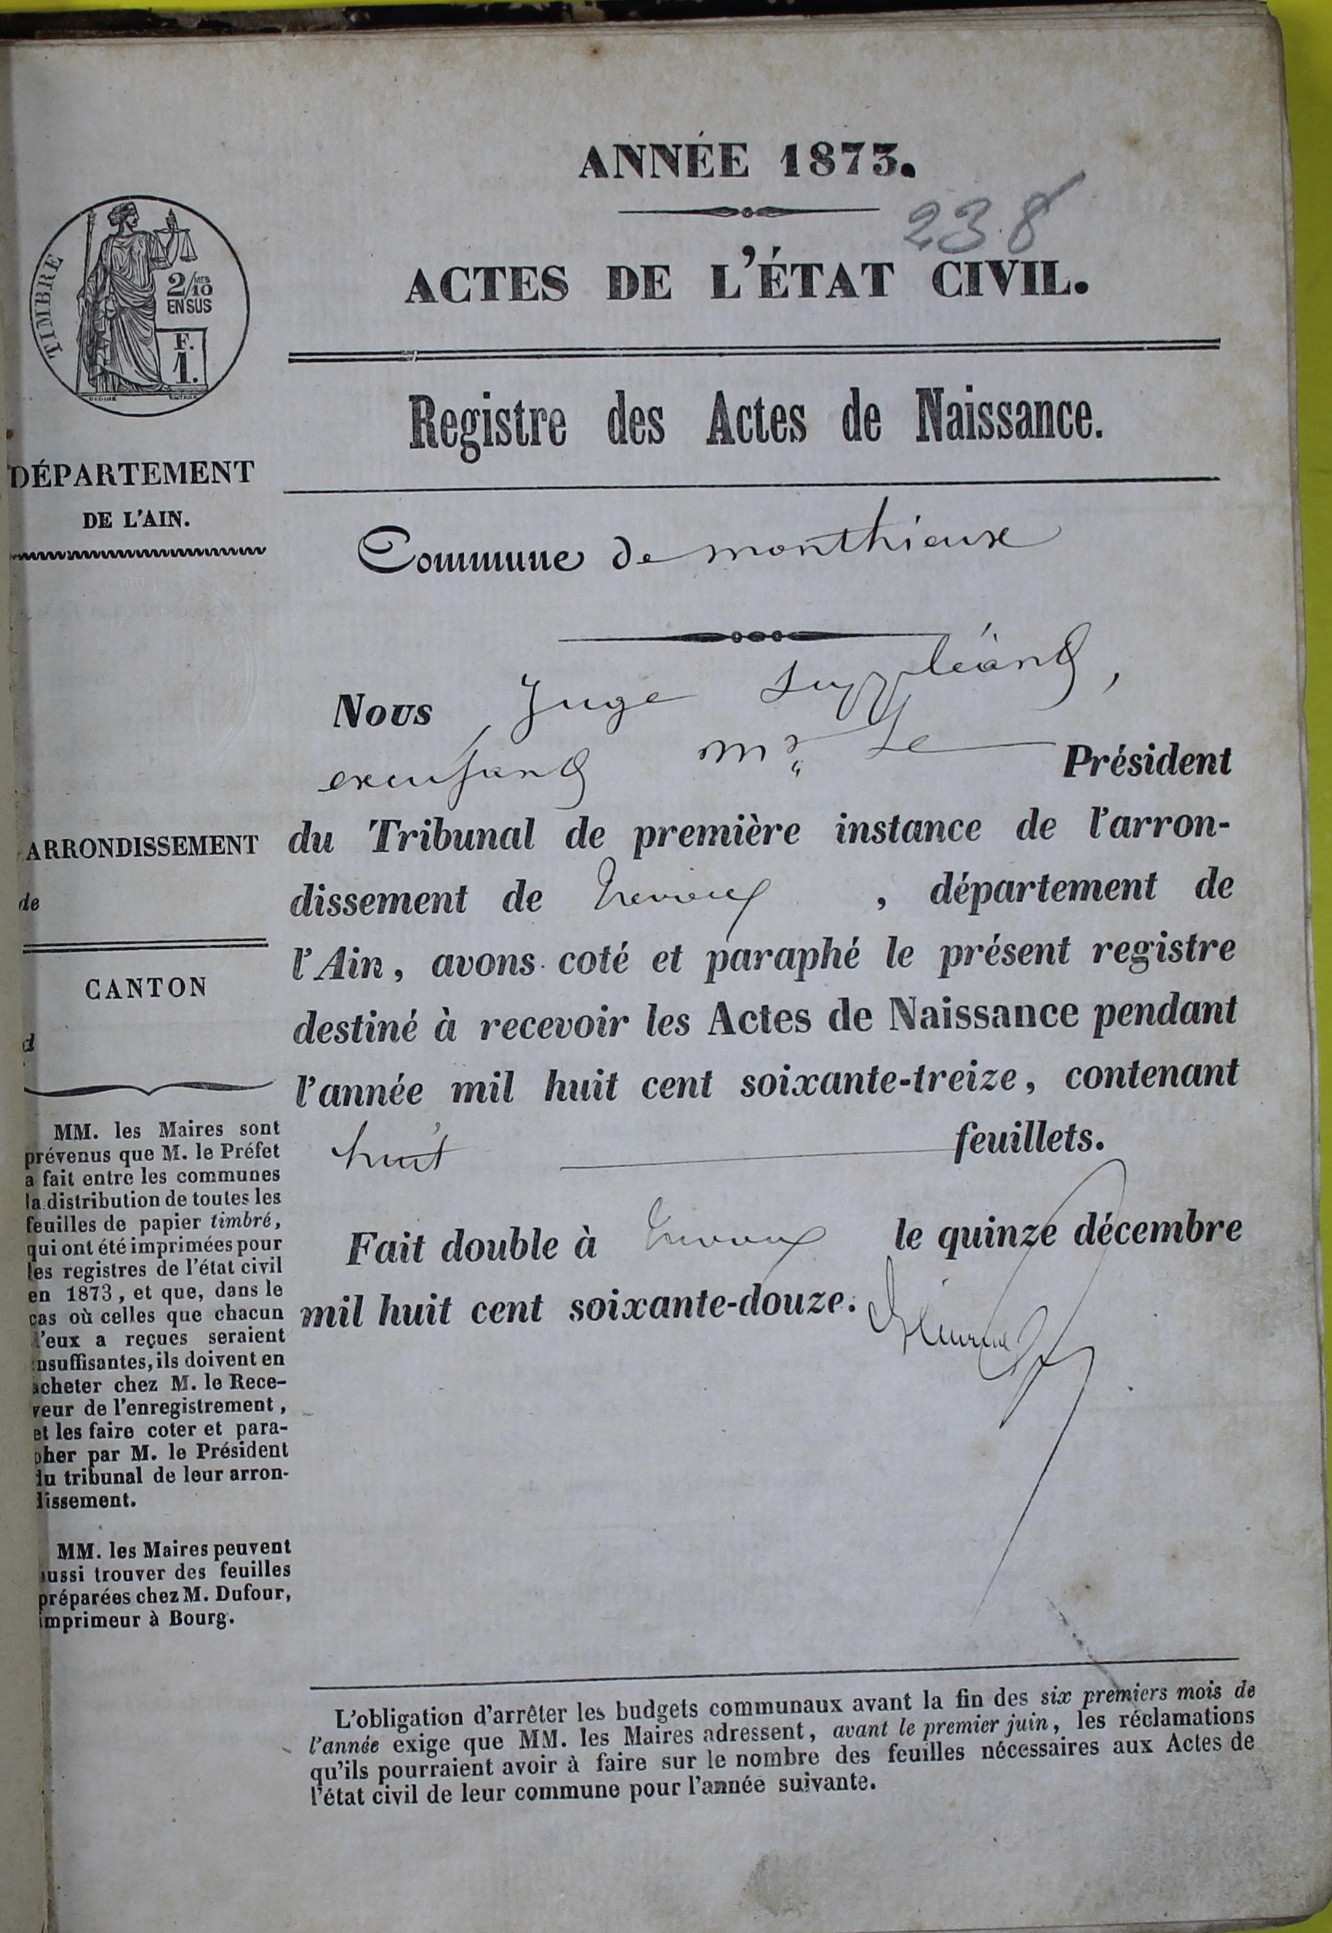 ANNÉE 1873.
238
ACTES DE L'ÉTAT CIVIL.
Registre des Actes de Naissance.
TIMBRE
2/10 EN SUS
F.
1.
DÉPARTEMENT
DE L'AIN.
ARRONDISSEMENT
de
CANTON
d
MM. les Maires sont
prévenus que M. le Préfet
a fait entre les communes
la distribution de toutes les
feuilles de papier timbré,
qui ont été imprimées pour
les registres de l'état civil
en 1873, et que, dans le
cas où celles que chacun
d'eux a reçues seraient
insuffisantes, ils doivent en
acheter chez M. le Rece-
veur de l'enregistrement,
et les faire coter et para-
pher par M. le Président
du tribunal de leur arron-
dissement.
MM. les Maires peuvent
aussi trouver des feuilles
préparées chez M. Dufour,
imprimeur à Bourg.
Commune de monthieux
Nous Juge suppléant,
Mr Le Président
du Tribunal de première instance de l'arron-
dissement de Trevoux, département de
l'Ain, avons coté et paraphé le présent registre
destiné à recevoir les Actes de Naissance pendant
l'année mil huit cent soixante-treize, contenant
huit feuillets.
Fait double à Trevoux le quinze décembre
mil huit cent soixante-douze.
L'obligation d'arrêter les budgets communaux avant la fin des six premiers mois de
l'année exige que MM. les Maires adressent, avant le premier juin, les réclamations
qu'ils pourraient avoir à faire sur le nombre des feuilles nécessaires aux Actes de
l'état civil de leur commune pour l'année suivante.